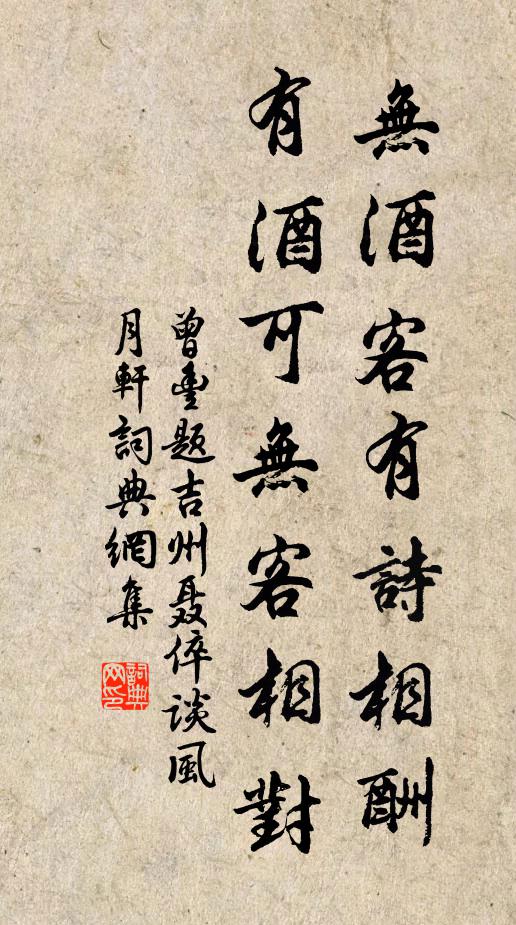 無酒客有詩相酬
有酒可無客相對
曾豊題吉州聂倅談風
月軒詞典網集
詞典網印